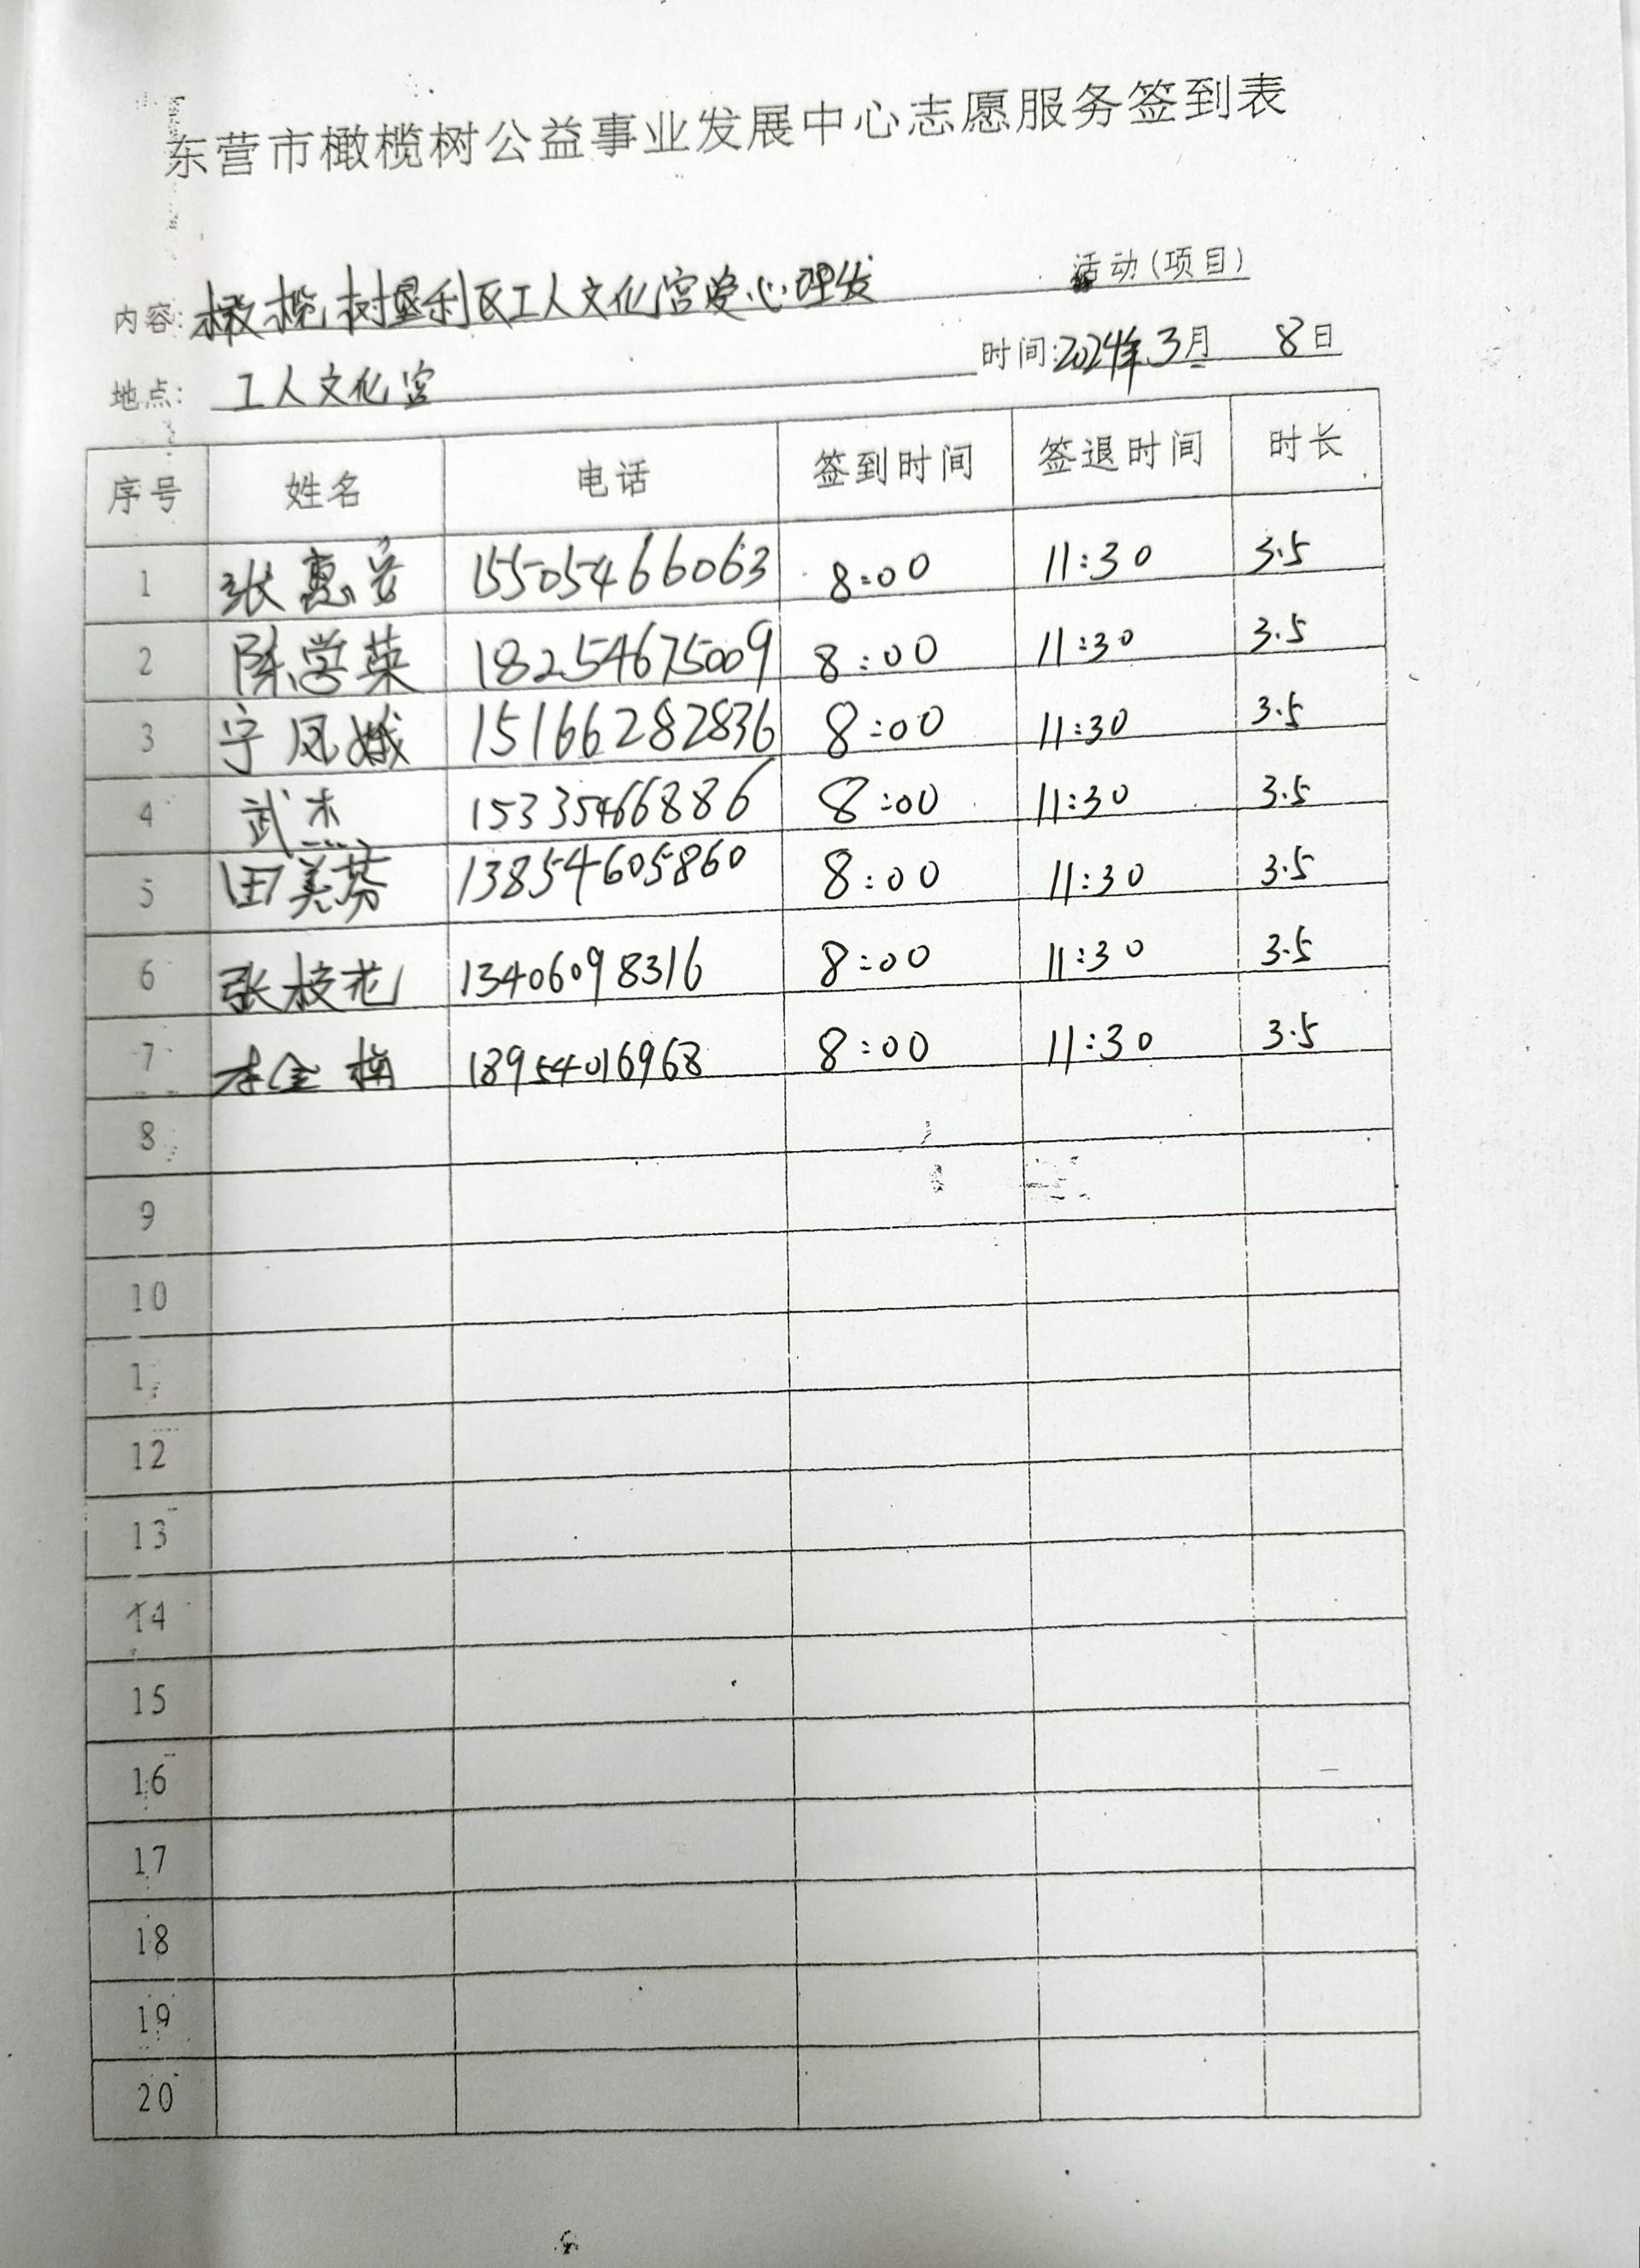 东营市橄榄树公益事业发展中心志愿服务签到表
内容: 橄榄树垦利区工人文化宫爱心理发 活动(项目)
地点: 工人文化宫 时间:2024年3月 8日
序号 姓名 电话 签到时间 签退时间 时长
1 张惠安 15505466063 8:00 11:30 3.5
2 陈学英 18254675009 8:00 11:30 3.5
3 宁凤娥 15166282836 8:00 11:30 3.5
4 武杰 15335466886 8:00 11:30 3.5
5 田美芬 13854605860 8:00 11:30 3.5
6 张枝花 13406098316 8:00 11:30 3.5
7 李金梅 18954016968 8:00 11:30 3.5
8
9
10
1
12
13
14
15
16
17
18
19
20